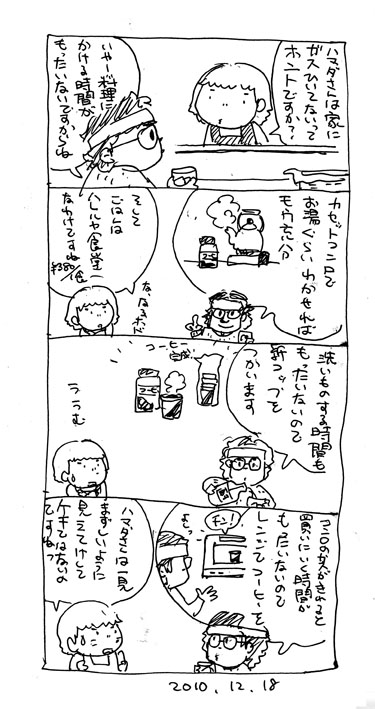 ハマダさんは家に
ガスひいてないって
ホントですか?
いやー料理に
かける時間が
もったいないですからね
カセットコンロで
お湯ぐらいわかせれば
もう充分
コーヒー
そして
ごはんは
ハレルヤ食堂
なわけですね
¥380/食
なるほど
洗いものする時間も
もったいないので
紙コップを
つかいます
コーヒー
完成
ううむ
買いにいく時間が
もったいないので
レンジでコーヒーを
チン!
ハマダさんは一見
まずしいように
見えてけして
ケチではないの
ですねっ
2010.12.18